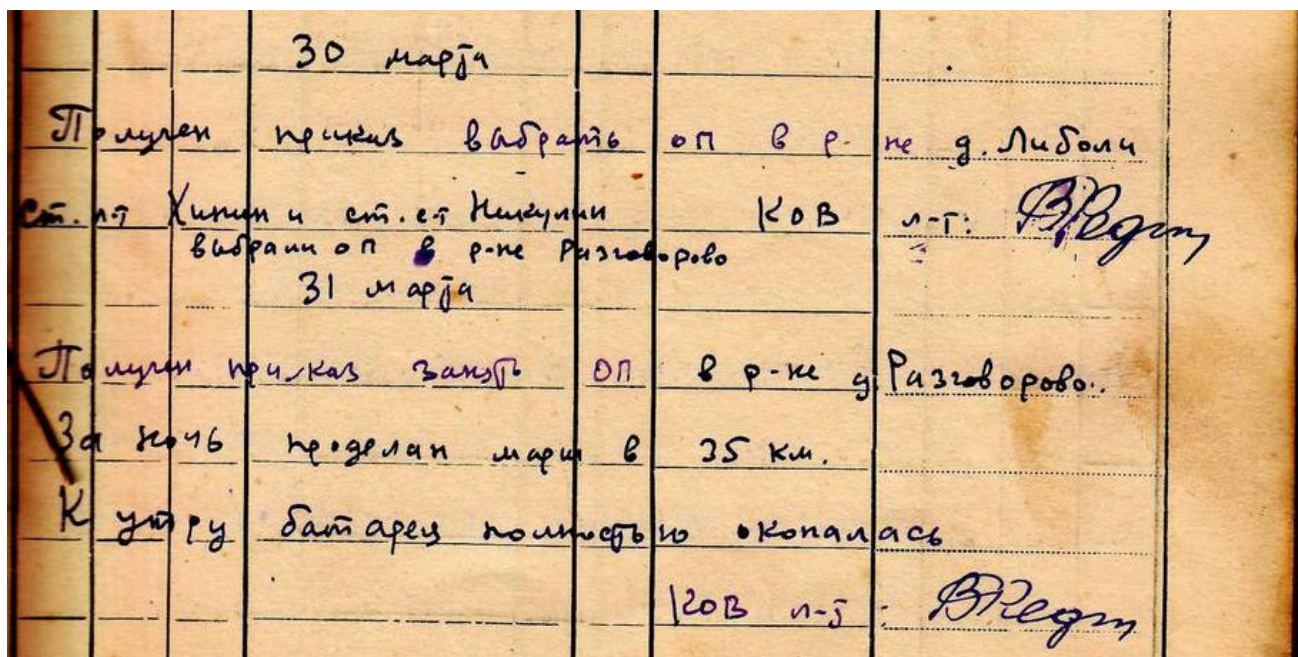 30 марта
Получен приказ выбрать ОП в р-не д. Либоли
ст. л-т Хинин и ст. с-т Никулин КОВ л-т:
выбрали ОП в р-не Разговорово
31 марта
Получен приказ занять ОП в р-не д. Разговорово.
За ночь проделан марш в 35 км.
К утру батарея полностью окопалась
КОВ л-т: